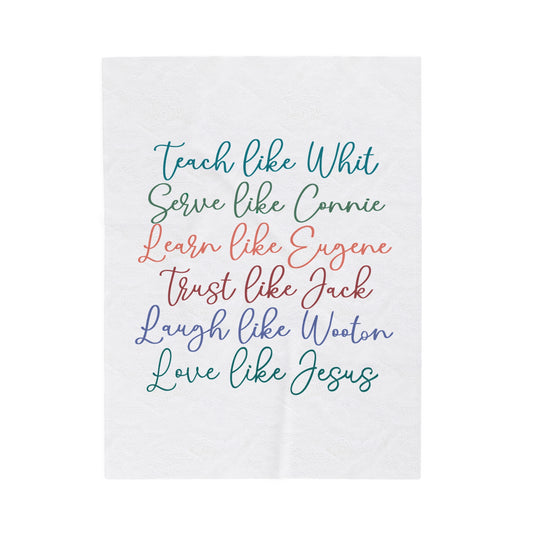 Teach like Whit
Serve like Connie
Learn like Eugene
Trust like Jack
Laugh like Wooton
Love like Jesus